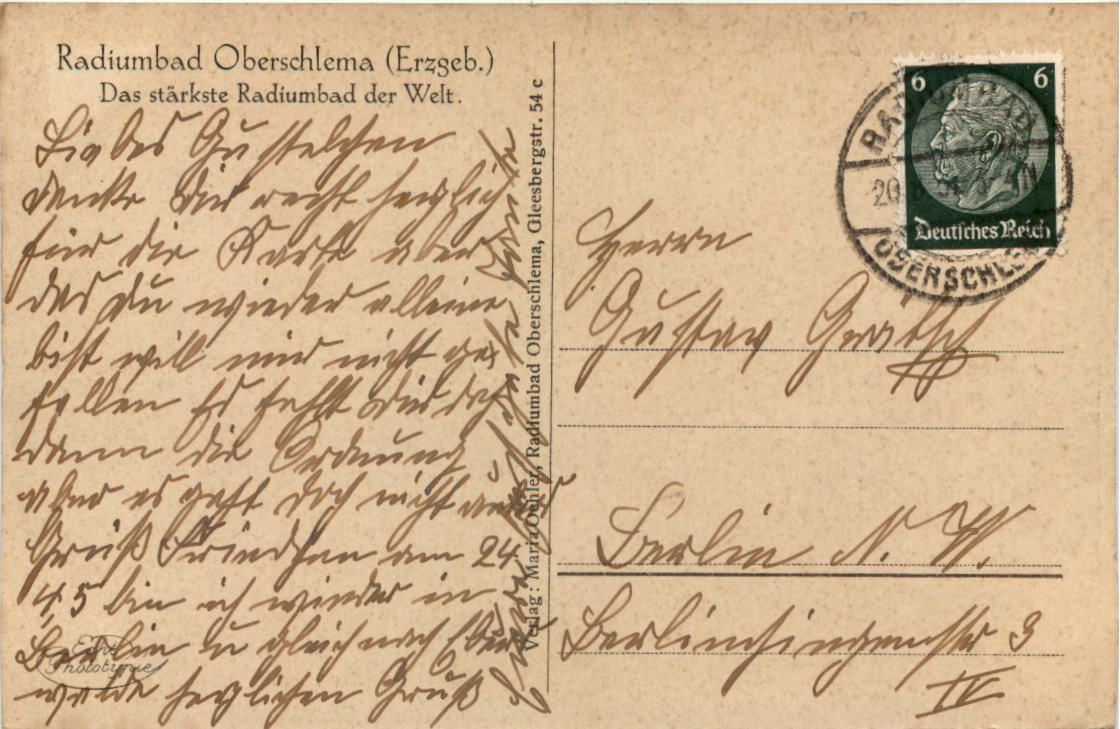 Radiumbad Oberschlema (Erzgeb.)
Das stärkste Radiumbad der Welt.
Liebes Gustelchen
danke dir recht herzlich
für die Karte aber
das du wieder alleine
bist will mir nicht ge
fallen Es fehlt dir doch
dann die Ordnung
aber es geht doch nicht anders
Gruß Friedchen am 24
4.5 bin ich wieder in
Berlin u gleich nach
werde herzlichen Gruß
Verlag: Maria Oehler, Radiumbad Oberschlema, Gleesbergstr. 54 c
Echte Phototypie
6 6
Deutsches Reich
RADIUMBAD
20
OBERSCHLEMA
Herrn
Gustav Grätsch
Berlin N.W.
Berlichingenstr 3
IV